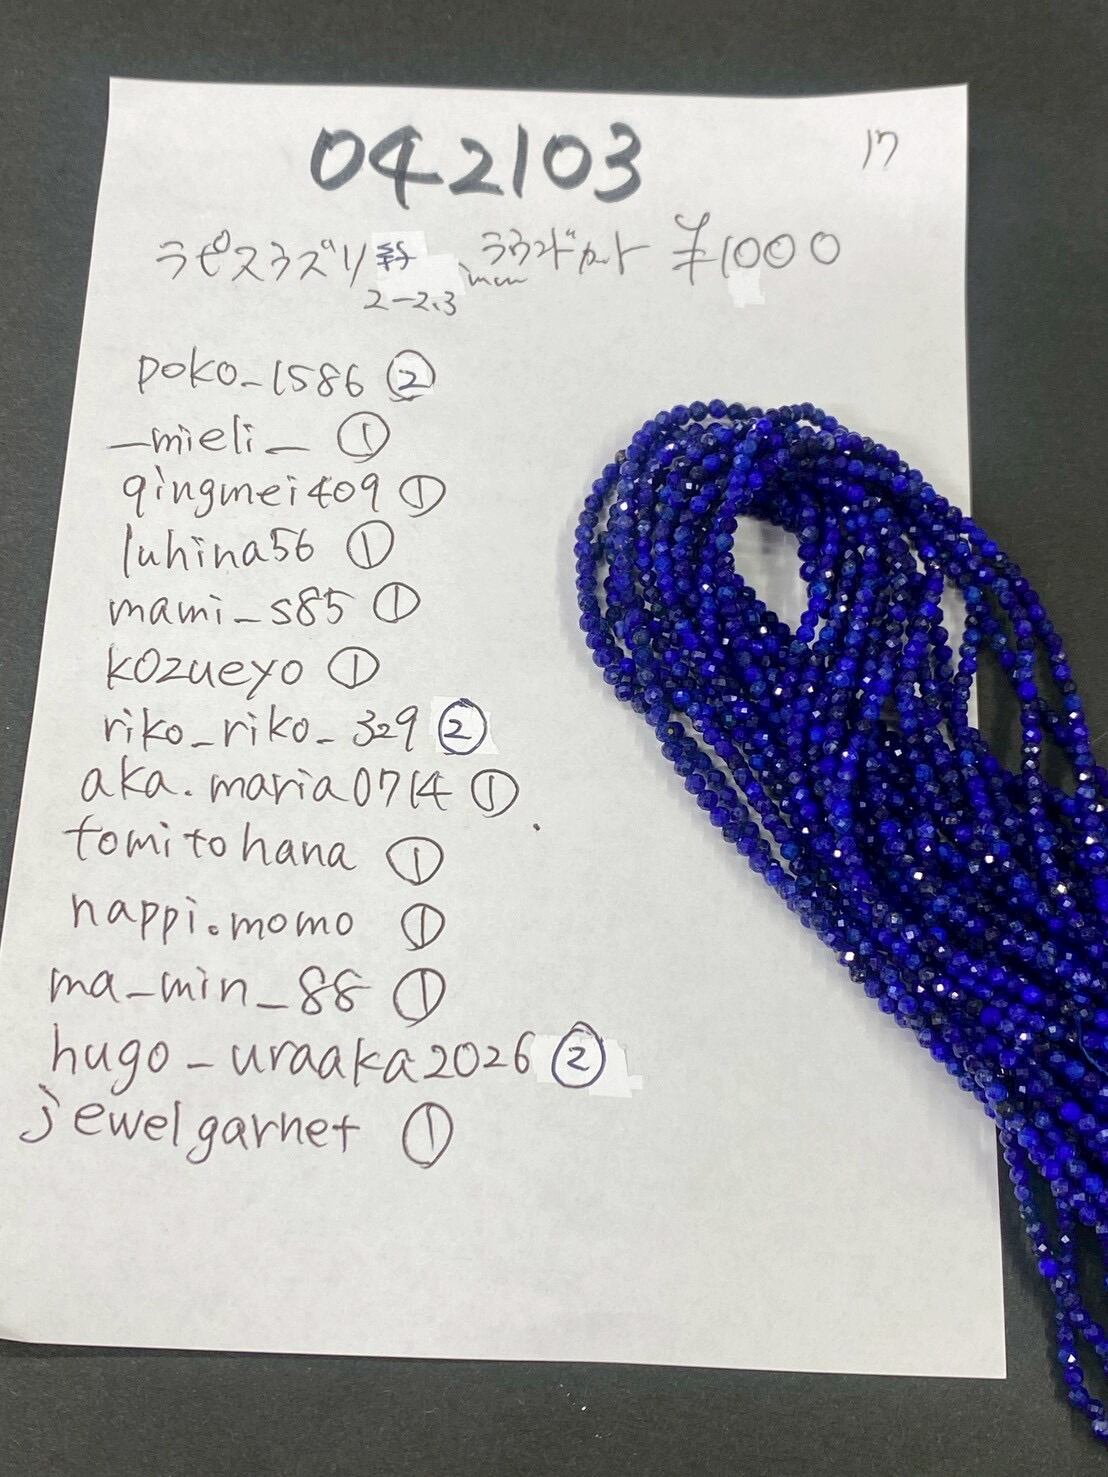 042103
17
ラピスラズリ 2-2.3mm ラウンドカット ¥1000
poko_1586 ②
_mieli_ ①
qingmei409 ①
luhina56 ①
mami_s85 ①
kozueyo ①
riko_riko_329 ②
aka.maria0714 ①
tomitohana ①
nappi.momo ①
ma_min_88 ①
hugo_uraaka2026 ②
jewelgarnet ①